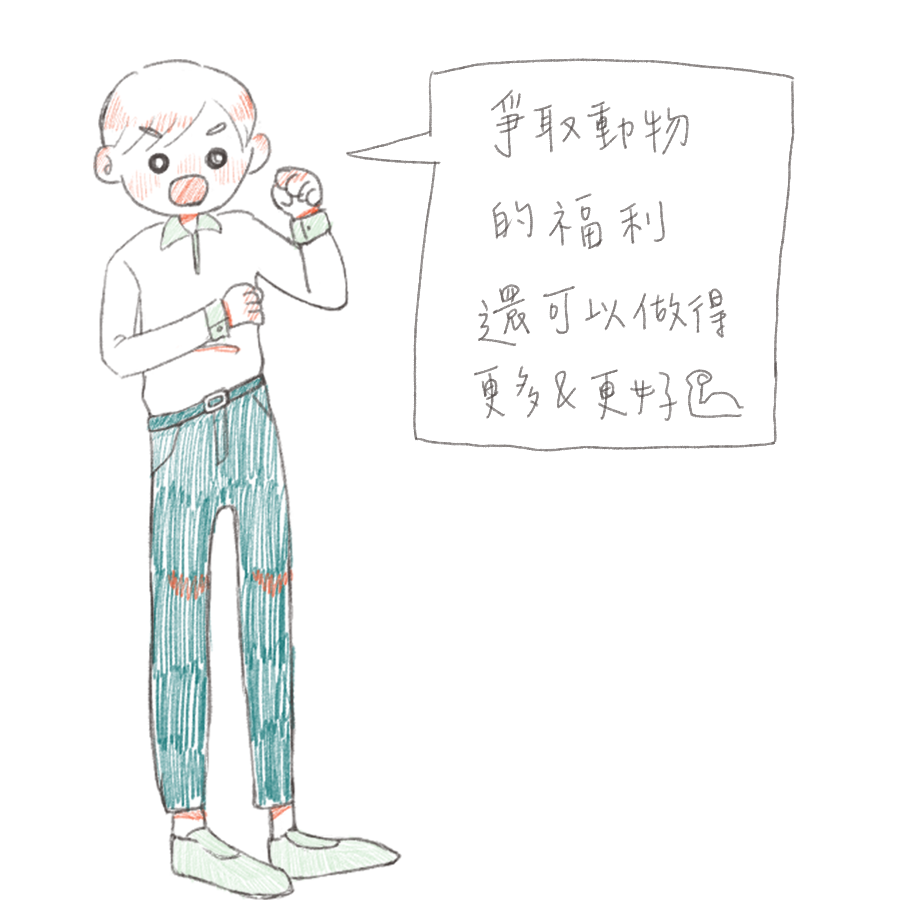 爭取動物
的福利
還可以做得
更多&更好